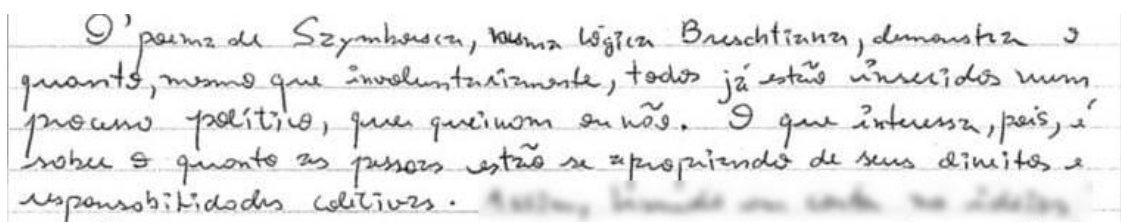 O poema de Szymborsca, numa lógica Breschtiana, demonstra o
quanto, mesmo que involuntariamente, todos já estão inseridos num
processo político, quer queiram ou não. O que interessa, pois, é
saber o quanto as pessoas estão se apropriando de seus direitos e
responsabilidades coletivas.